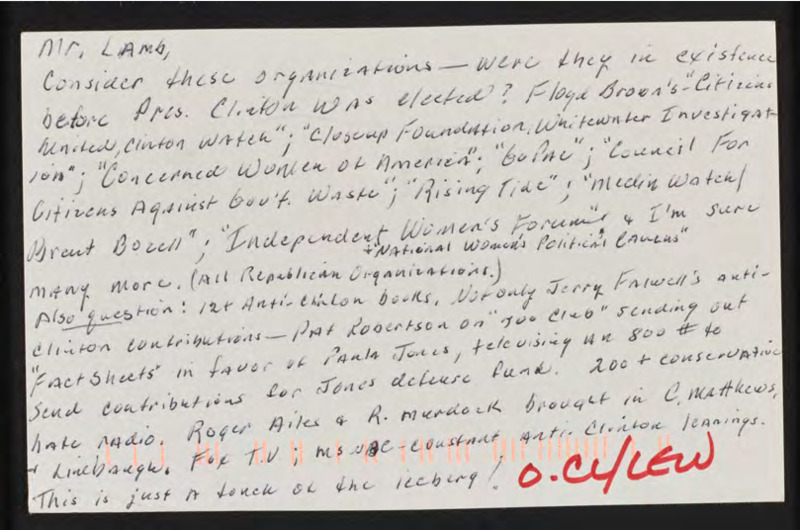 Mr. Lamb,
Consider these organizations — were they in existence
before Pres. Clinton was elected? Floyd Brown's "Citizens
United, Clinton Watch"; "Closeup Foundation, Whitewater Investigat-
ion"; "Concerned Women of America"; "GoPac"; "Council For
Citizens Against Gov't. Waste"; "Rising Tide"; "Media Watch/
Brent Bozell"; "Independent Women's Forum" & I'm sure
+ "National Women's Political Caucus"
many more. (All Republican Organizations.)
Also question: 12+ Anti-Clinton books. Not only Jerry Falwell's anti-
Clinton contributions — Pat Robertson on "700 Club" sending out
"Fact Sheets" in favor of Paula Jones, televising an 800 # to
send contributions for Jones defense fund. 200 + conservative
hate radio. Roger Ailes & R. Murdock brought in C. Matthews,
+ Linebaugh. Fox T.V; MSNBC - constant anti-Clinton leanings.
This is just a touch of the iceberg!